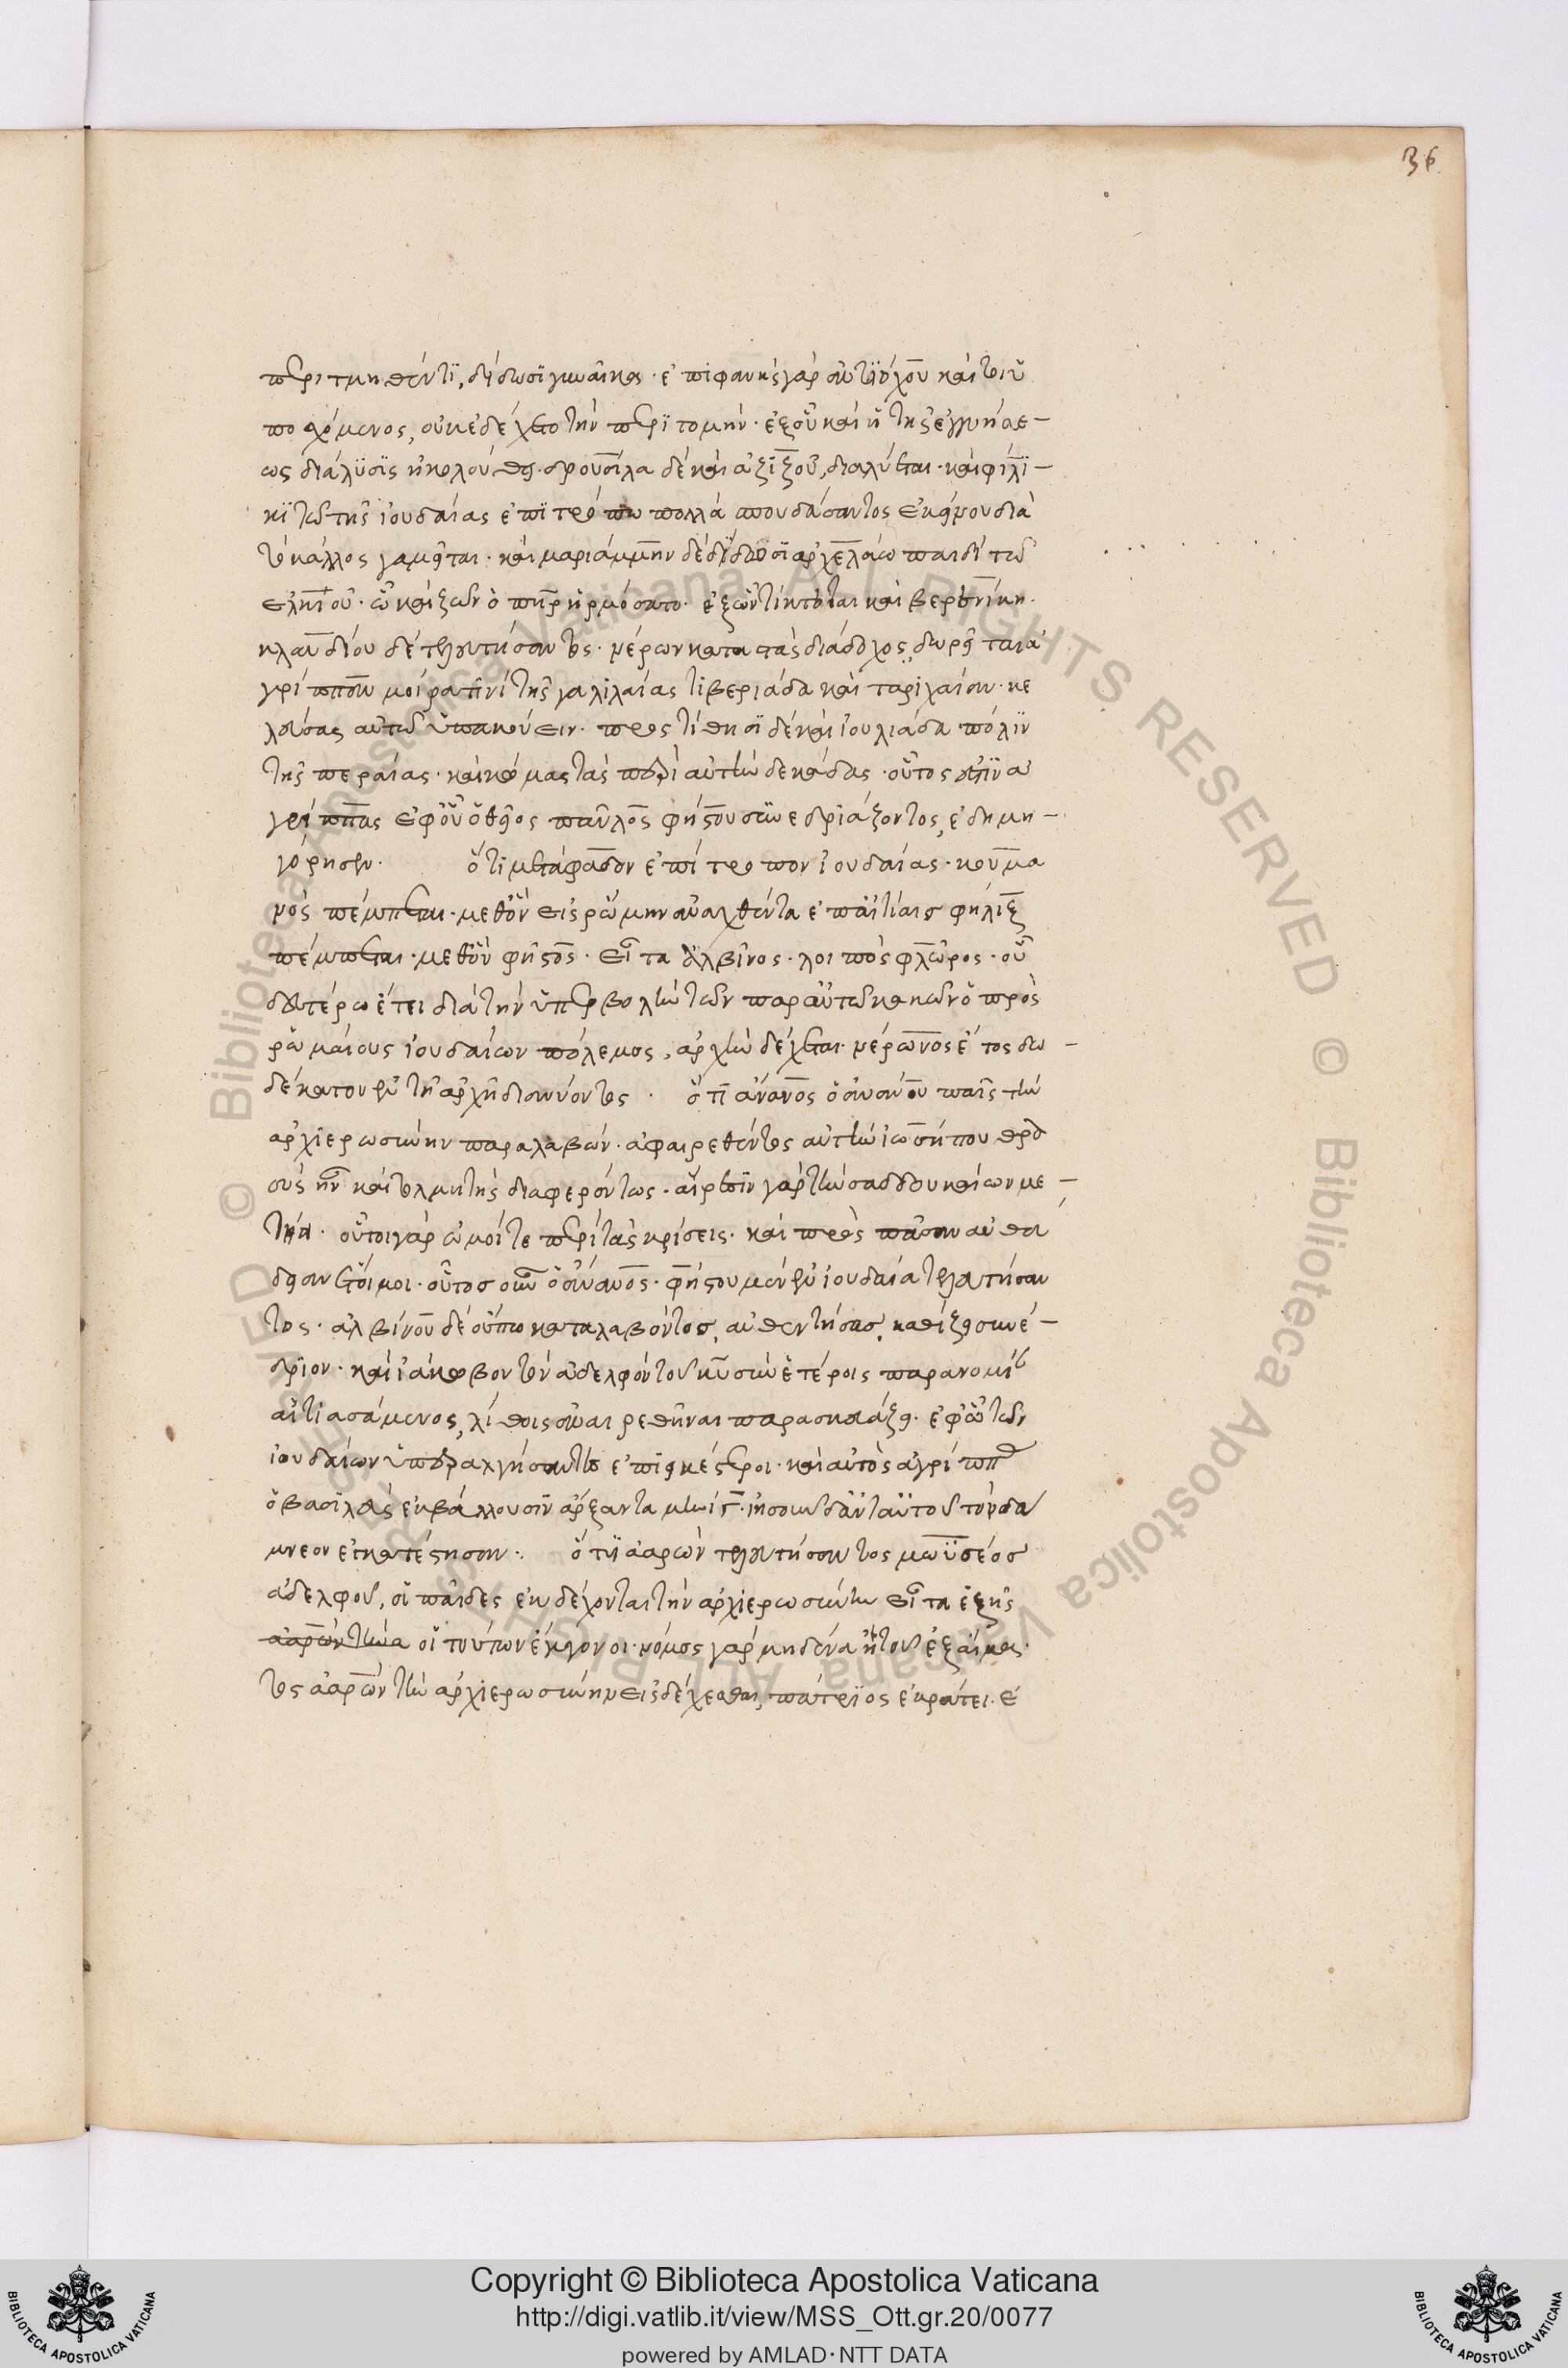 36
περιτμηθέντι, δίδωσι γυναῖκα· ἐπιφανὴς γὰρ ἀντιόχου καὶ τοι ὑ
ποσχόμενος, οὐκ ἐδέχετο τὴν περιτομήν· ἐξ οὗ καὶ ἡ τῆς ἐγγυήσε–
ως διάλυσις ἠκολούθει· δρουσίλα δὲ καὶ ἀζίζου, διαλύεται· καὶ φίλι–
κι τῶ τῆς ἰουδαίας ἐπιτρόπω πολλὰ σπουδάσαντος ἐκείνου διὰ
τὸ κάλλος γαμεῖται· καὶ μαριάμμην δὲ δίδωσι ἀρχελάω παιδὶ τῶ
ἑλκίου· ὧ καὶ ζῶν ὁ πηρ ἡρμόσατο· ἐξ ὧν τίκτεται καὶ βερενίκη·
κλαυδίου δὲ τελευτήσαντος· νέρων καταστὰς διάδοχος, δωρεῖται ἀ
γρίππαν μοίρα τινὶ τῆς γαλιλαίας τιβεριάδα καὶ ταριχαίαν· κε
λεύσας αὐτῶ ὑπακούειν· προστίθησι δὲ καὶ ἰουλιάδα πόλιν
τῆς περαίας· καὶ κώμας τὰς περὶ αὐτὴν δεκάδας· οὗτος ἐστὶν ἀ
γρίππας ἐφ οὗ ὁ θεῖος παῦλος φήστου συνεδριάζοντος, ἐδημη–
γόρησεν· ὅτι μετὰ φάδον ἐπίτροπον ἰουδαίας· κουμα
νὸς πέμπεται· μεθ ὃν εἰς ρώμην ἀναχθέντα ἐπ αἰτίαις φήλιξ
πέμπεται· μεθ ὃν φῆστος· εἶτα ἀλβῖνος· λοιπὸς φλῶρος· οὗ
δευτέρω ἔτει διὰ τὴν ὑπερβολὴν τῶν παρ αὐτῶ κακῶν ὁ πρὸς
ρωμαίους ἰουδαίων πόλεμος, ἀρχὴν δέχεται· νέρωνος ἔτος δω–
δέκατον ἐν τῆ ἀρχῆ διανύοντος· ὅτι ἄνανος ὁ ἀνάνου παῖς τὴν
ἀρχιερωσύνην παραλαβών· ἀφαιρεθέντος αὐτὴν ἰωσήπου θρα
σὺς ἦν καὶ τολμητὴς διαφερόντως· αἵρεσιν γὰρ τὴν σαδδουκαίων με–
τήει· οὗτοι γὰρ ὠμοί τε περὶ τὰς κρίσεις· καὶ πρὸς πᾶσαν αὐθά
δειαν ἕτοιμοι· οὗτος οὖν ὁ ἄνανος· φήστου μὲν ἐν ἰουδαία τελευτήσαν
τος· ἀλβίνου δὲ οὔπω καταλαβόντος, αὐθεντήσας, καθίζει συνέ–
δριον· καὶ ἰάκωβον τὸν ἀδελφὸν τοῦ κυ σὺν ἑτέροις παρανομίαν
αἰτιασάμενος, λίθοις ἀναιρεθῆναι παρασκευάζει· ἐφ ὧ τῶν
ἰουδαίων ὑπερήλγησαν τε ἐπιεικέστεροι· καὶ αὐτὸς ἀγρίππας
ὁ βασιλεὺς ἐκβάλλουσιν ἄρξαντα μῆνας Γ· ἰησοῦν δ ἀντ αὐτοῦ τὸν δα
μνεον ἐγκατέστησαν· ὅτι ἀαρὼν τελευτήσαντος μωϋσέος
ἀδελφοῦ, οἱ παῖδες ἐκδέχονται τὴν ἀρχιερωσύνην εἶτα ἑξῆς
οἱ τούτων ἔκγονοι· νόμος γὰρ μηδένα ἢ τοῦ ἐξ αἵμα–
τος ἀαρὼν τὴν ἀρχιερωσύνην εἰσδέχεσθαι, πάτριος ἐκράτει· ἐ
Copyright © Biblioteca Apostolica Vaticana
http://digi.vatlib.it/view/MSS_Ott.gr.20/0077
powered by AMLAD·NTT DATA